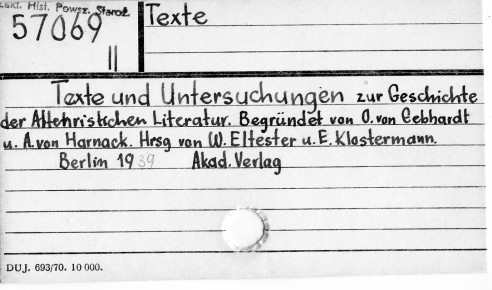 Zakł. Hist. Powsz. Staroż.
57069
II
Texte
Texte und Untersuchungen zur Geschichte
der Altchristichen Literatur. Begründet von O. von Gebhardt
u. A. von Harnack. Hrsg von W. Eltester u. E. Klostermann.
Berlin 1939 Akad. Verlag
DUJ. 693/70. 10 000.